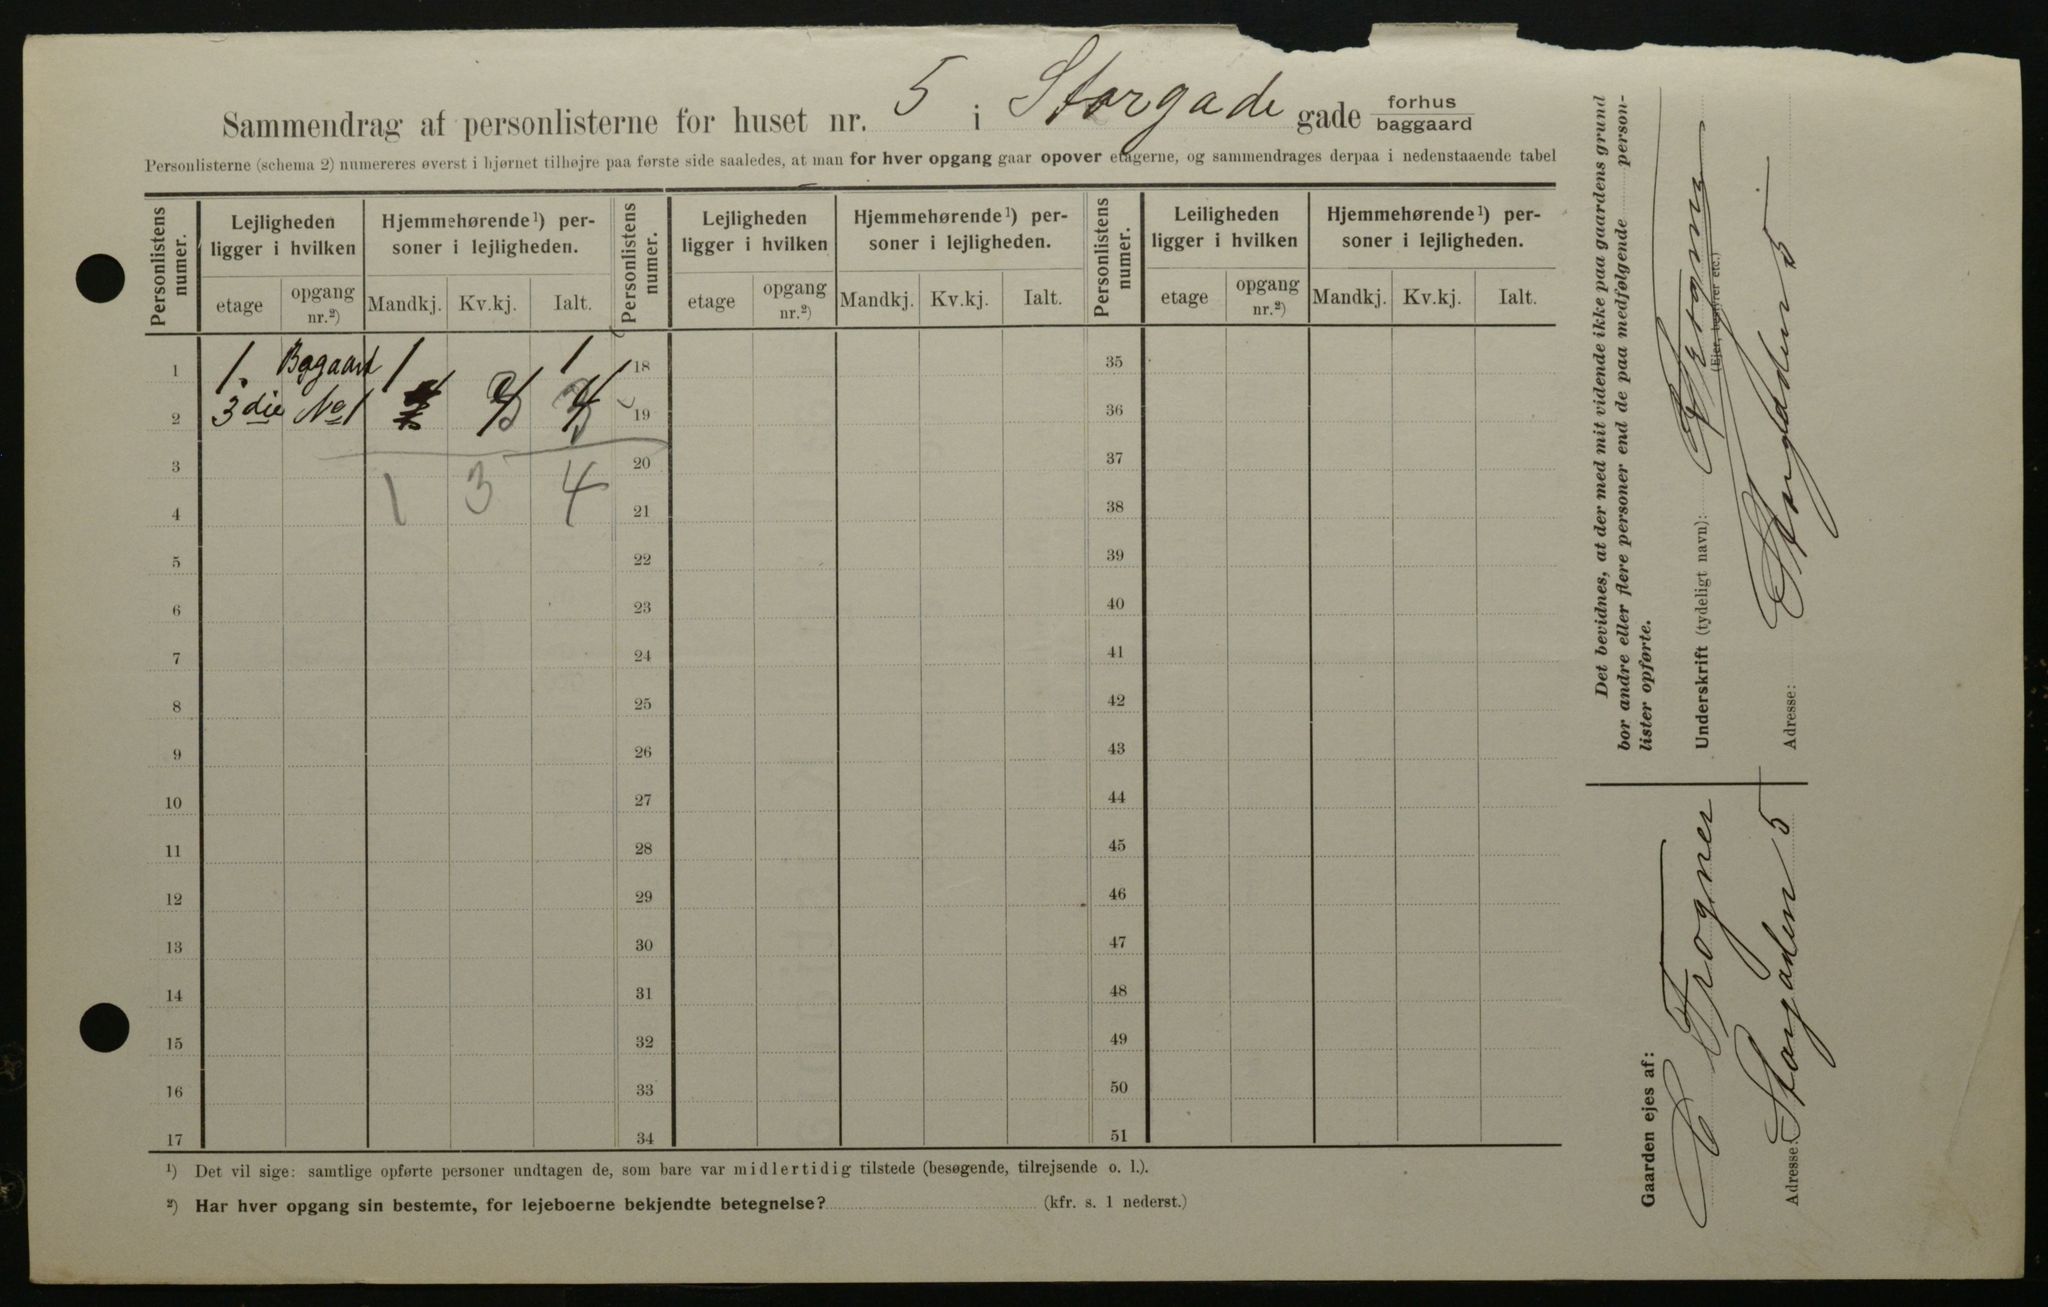 Sammendrag af personlisterne for huset nr. 5 i Storgade gade forhus baggaard
Personlisterne (schema 2) numereres øverst i hjørnet tilhøjre paa første side saaledes, at man for hver opgang gaar opover etagerne, og sammendrages derpaa i nedenstaaende tabel
Personlistens numer. Lejligheden ligger i hvilken Hjemmehørende ¹) personer i lejligheden. Personlistens numer. Lejligheden ligger i hvilken Hjemmehørende ¹) personer i lejligheden. Personlistens numer. Leiligheden ligger i hvilken Hjemmehørende ¹) personer i lejligheden.
etage opgang nr.²) Mandkj. Kv.kj. Ialt. etage opgang nr.²) Mandkj. Kv.kj. Ialt. etage opgang nr.²) Mandkj. Kv.kj. Ialt.
1 1. Bagaard 1 1 18 35
2 3die No 1 19 36
3 1 3 4 20 37
4 21 38
5 22 39
6 23 40
7 24 41
8 25 42
9 26 43
10 27 44
11 28 45
12 29 46
13 30 47
14 31 48
15 32 49
16 33 50
17 34 51
¹) Det vil sige: samtlige opførte personer undtagen de, som bare var midlertidig tilstede (besøgende, tilrejsende o. l.).
²) Har hver opgang sin bestemte, for lejeboerne bekjendte betegnelse? (kfr. s. 1 nederst.)
Det bevidnes, at der med mit vidende ikke paa gaardens grund
bor andre eller flere personer end de paa medfølgende person-
lister opførte.
Underskrift (tydeligt navn):
(Ejer, bestyrer etc.)
Adresse: Storgaden 5
Gaarden ejes af:
C Frogner
Adresse: Storgaden 5